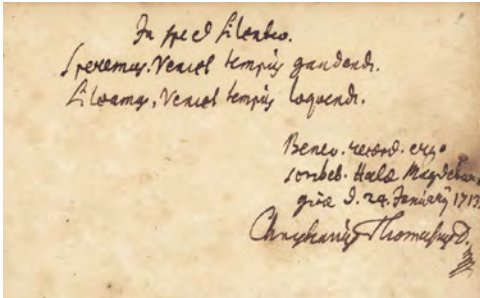 In spe et Silentio.
Speremus. Veniet tempus gaudendi.
Sileamus, Veniet tempus loquendi.
Benev. record. ergo
scribeb. Halæ Magdebur
gicæ d. 24. Januarij 1713.
Christianus Thomasius D.